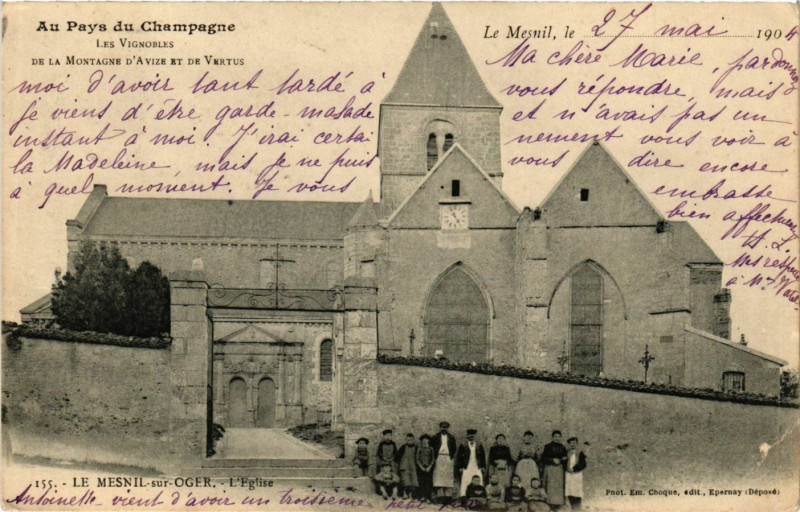 Au Pays du Champagne
Les Vignobles
de la Montagne d'Avize et de Vertus
Le Mesnil, le 27 mai 1904
Ma chère Marie, pardonnez
moi d'avoir tant tardé à vous répondre, mais
je viens d'être garde-malade et n'avais pas un
instant à moi. J'irai certai nement vous voir à
la Madeleine, mais je ne puis vous dire encore
à quel moment. Je vous embrasse
bien affectueu
Mes resp
à Mr
155. - LE MESNIL-sur-OGER. - L'Eglise
Phot. Em. Choque, édit., Epernay (Déposé)
Antoinette vient d'avoir un troisième petit